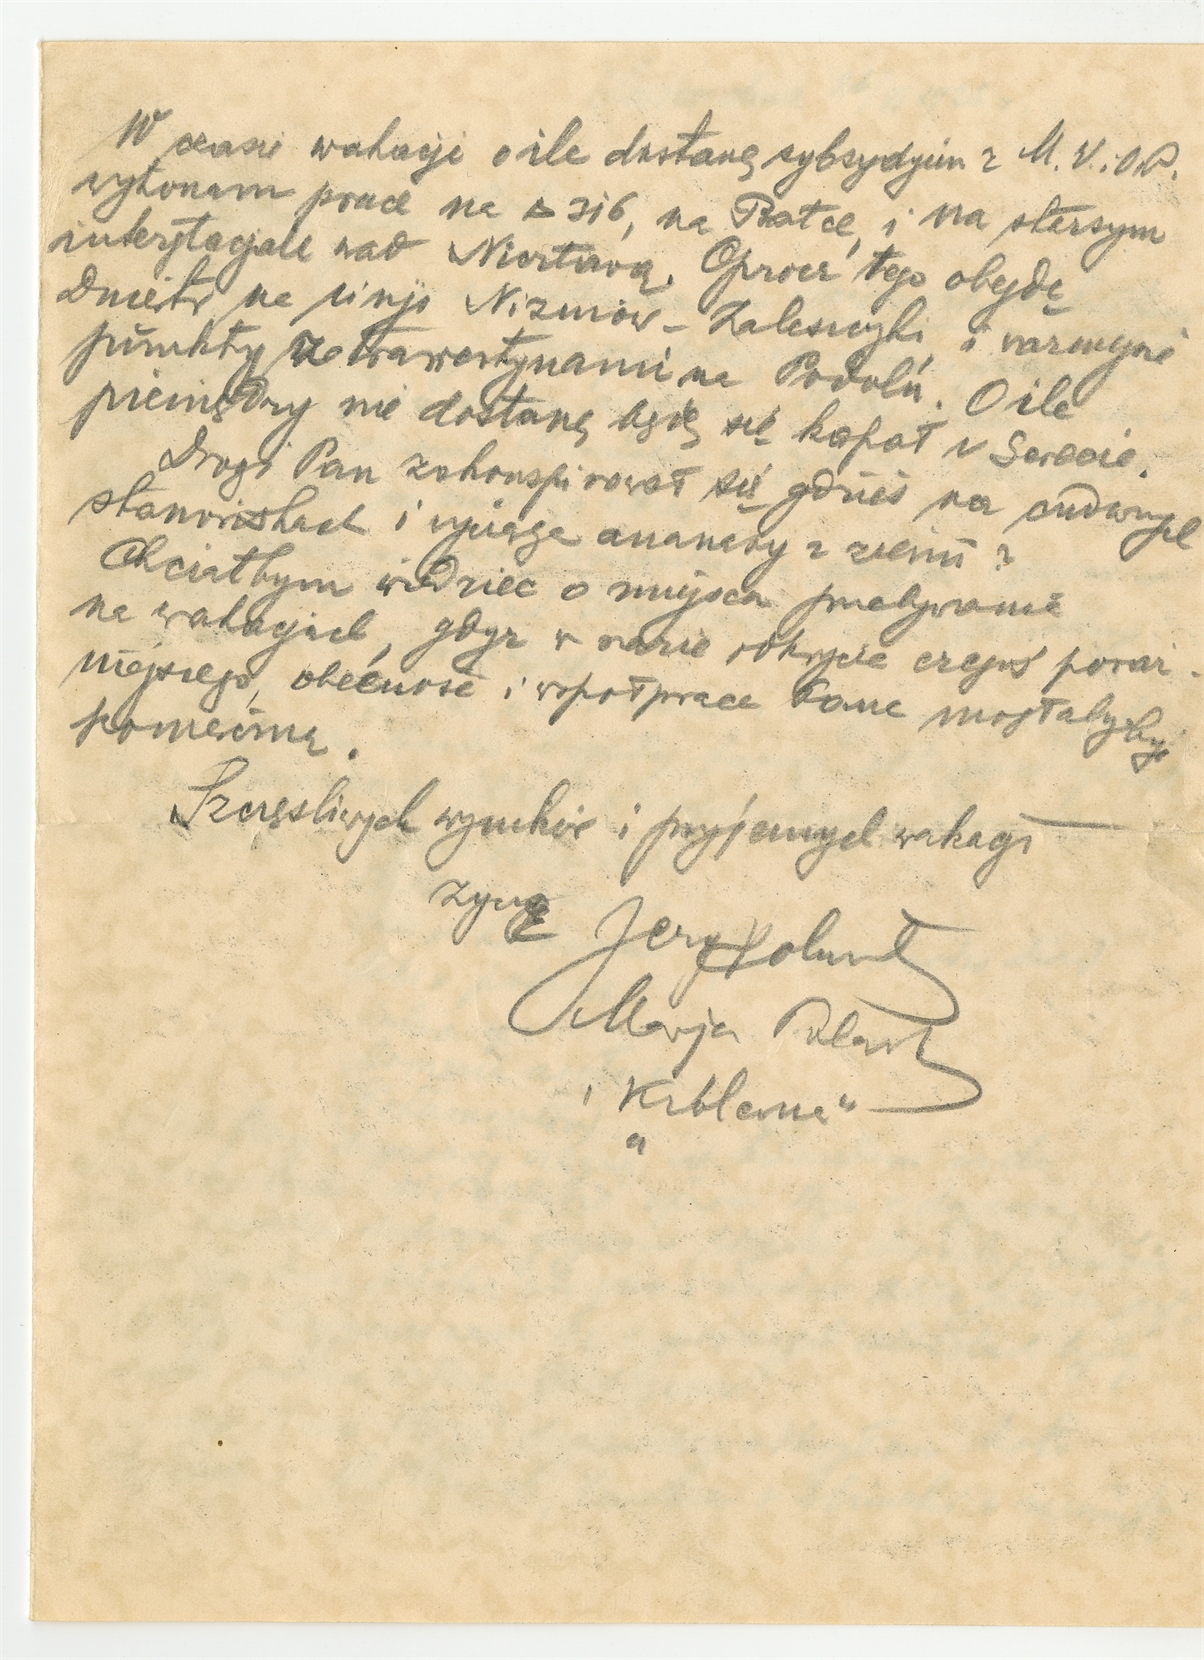 W czasie wakacji o ile dostanę sybsydjum z M. W. i O. P.
wykonam prace na △ 316, na Ratce, i na starszym
interstagjale nad Niecławą. Oprócz tego obejdę
Dniestr na linji Niżniów - Zaleszczyki i ważniejsze
punkty z trawertynami na Podolu. O ile
pieniędzy nie dostanę będę się kąpał w Serecie.
Drogi Pan zakonspirował się gdzieś na cudownych
stanowiskach i wyciąga ananasy z ziemi?
Chciałbym wiedzieć o miejscu przebywania
na wakacjach, gdyż w razie odkrycia czegoś poważ-
niejszego, obecność i współpraca Pana mogłaby być
pomocną.
Szczęśliwych wyników i przyjemnych wakacji
życzą Jerzy Polański
Marja Polańska
i "Kablena"